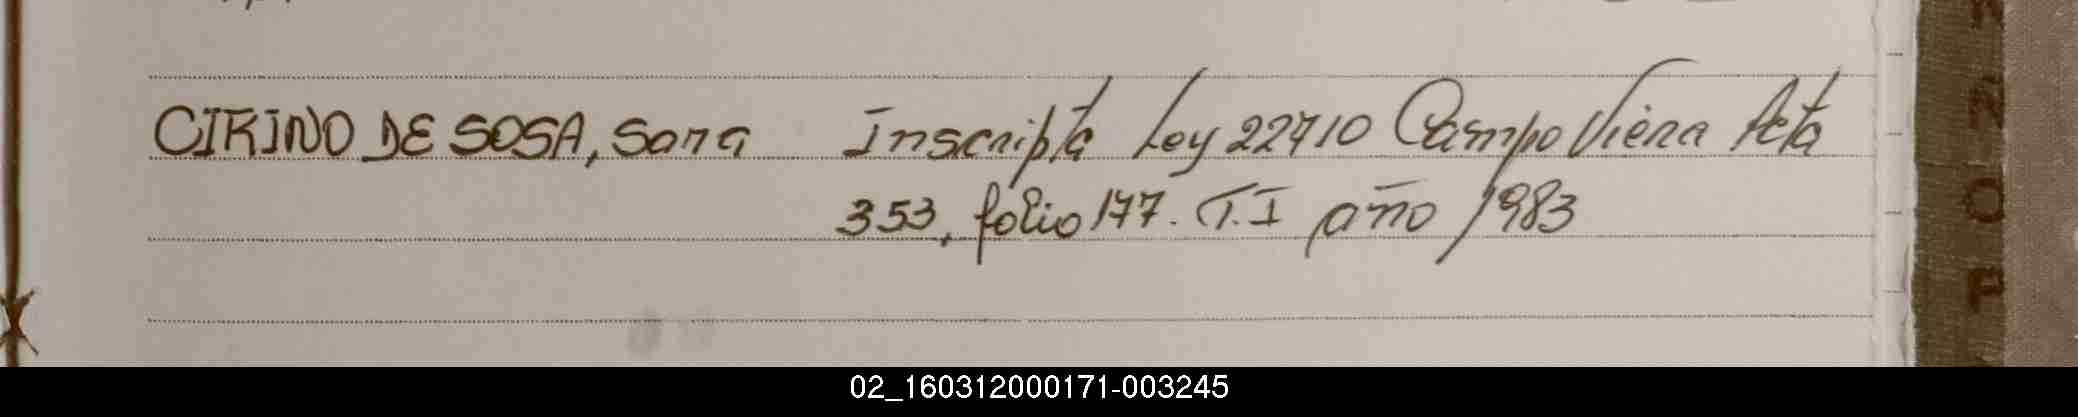 CIRINO DE SOSA, Sara Inscripta Ley 22410 Campo Viera Acta
353, folio 177. T.I año 1983
02_160312000171-003245